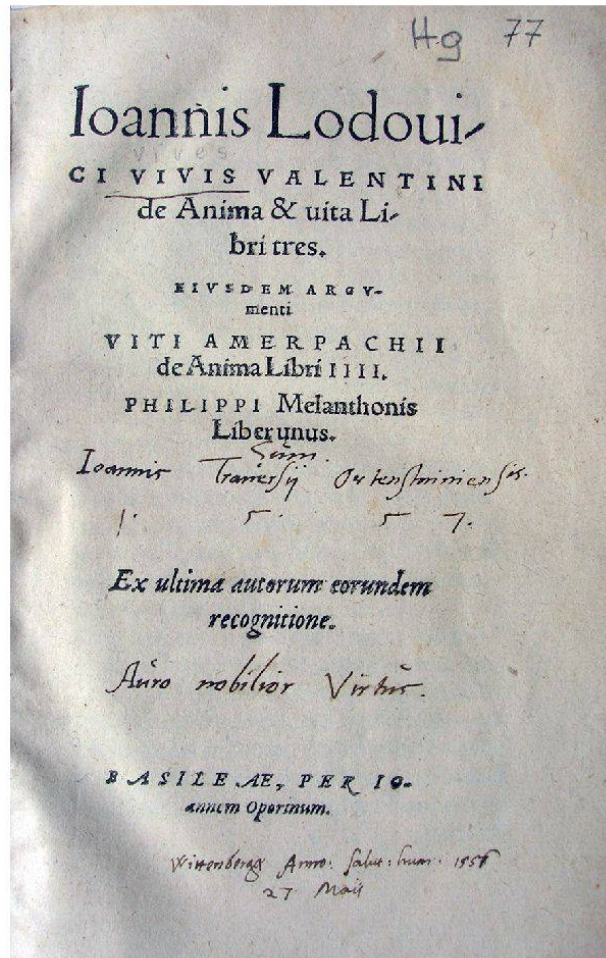 H.g 77
Ioannis Lodoui-
vives
CI VIVIS VALENTINI
de Anima & uita Li-
bri tres.
EIVSDEM ARGV-
menti
VITI AMERPACHII
de Anima Libri IIII.
PHILIPPI Melanthonis
Liber unus.
Sum
Ioannis
1. 5. 5 7.
Ex ultima autorum eorundem
recognitione.
Auro nobilior Virtus.
BASILEAE, PER IO-
annem Oporinum.
Wittenbergæ Anno: salut: 1556
27 Maii